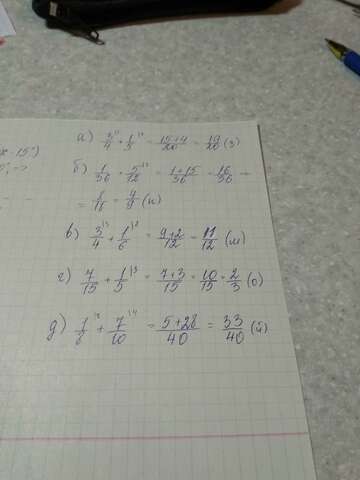 а) 3/4 + 1/5 = 15+4/20 = 19/20 (з)
б) 1/36 + 5/12 = 1+15/36 = 16/36 =
= 4/9 (и)
в) 3/4 + 1/6 = 9+2/12 = 11/12 (м)
г) 7/15 + 1/5 = 7+3/15 = 10/15 = 2/3 (о)
д) 1/8 + 7/10 = 5+28/40 = 33/40 (й)